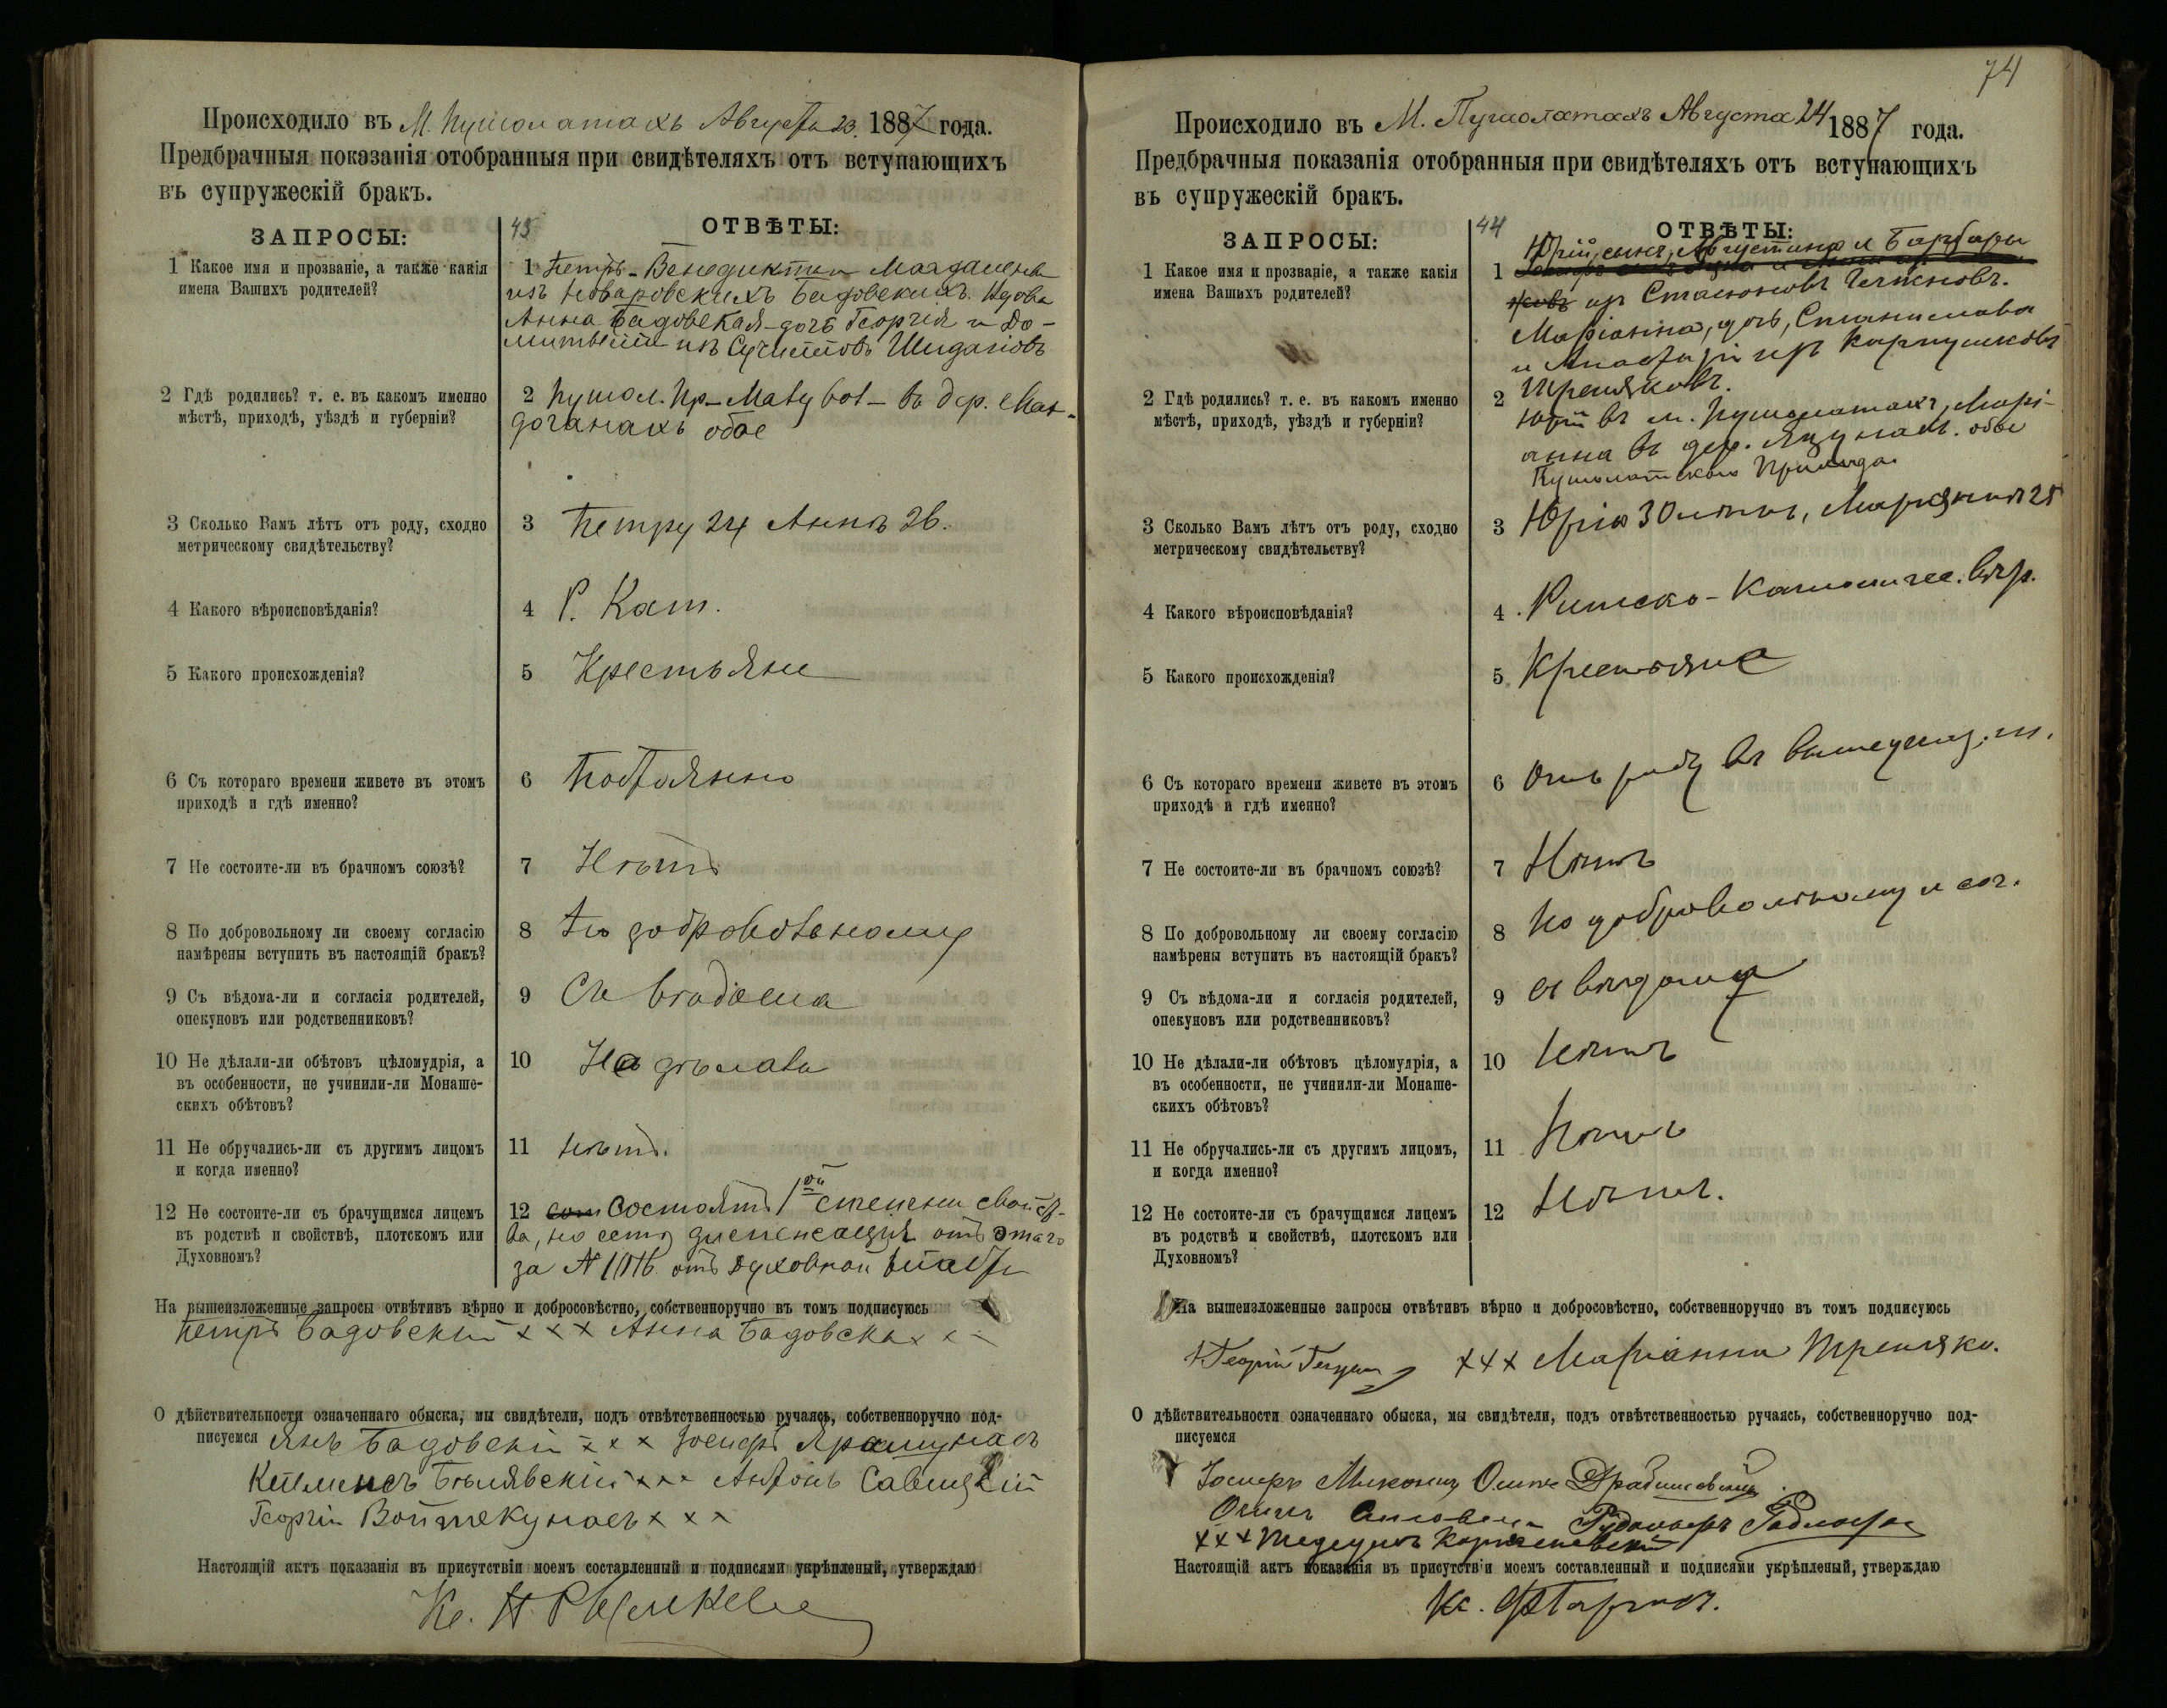 Происходило въ М. Пушолатахъ Августа 23. 1887 года.
Предбрачныя показанія отобранныя при свидѣтеляхъ отъ вступающихъ
въ супружескій бракъ.
ЗАПРОСЫ:
43 ОТВѢТЫ:
1 Какое имя и прозваніе, а также какія
имена Вашихъ родителей?
1 Петръ-Венедикта Магдалена
изъ Бадовскихъ. Вдова
Анна Бадовская-дочь Георгія и До-
2 Гдѣ родились? т. е. въ какомъ именно
мѣстѣ, приходѣ, уѣздѣ и губерніи?
2 Пушол. Пр- въ дер. Ман-
даганахъ обое
3 Сколько Вамъ лѣтъ отъ роду, сходно
метрическому свидѣтельству?
3 Петру 24 Аннѣ 26.
4 Какого вѣроисповѣданія?
4 Р. Кат.
5 Какого происхожденія?
5 Крестьяне
6 Съ котораго времени живете въ этомъ
приходѣ и гдѣ именно?
6 Постоянно
7 Не состоите-ли въ брачномъ союзѣ?
7 Нѣтъ
8 По добровольному ли своему согласію
намѣрены вступить въ настоящій бракъ?
8 По добровольному
9 Съ вѣдома-ли и согласія родителей,
опекуновъ или родственниковъ?
9 Съ вѣдома
10 Не дѣлали-ли обѣтовъ цѣломудрія, а
въ особенности, не учинили-ли Монаше-
скихъ обѣтовъ?
10 Не дѣлали
11 Не обручались-ли съ другимъ лицомъ
и когда именно?
11 Нѣтъ.
12 Не состоите-ли съ брачущимся лицемъ
въ родствѣ и свойствѣ, плотскомъ или
Духовномъ?
12 состоятъ 1ой степени свойст-
ва, но есть диспенсація отъ этаго
за № отъ духовной власти
На вышеизложенные запросы отвѣтивъ вѣрно и добросовѣстно, собственноручно въ томъ подписуюсь
Петръ Бадовскій × × × Анна Бадовска × × ×
О дѣйствительности означеннаго обыска, мы свидѣтели, подъ отвѣтственностью ручаясь, собственноручно под-
писуемся Янъ Бадовскій × × × Іосифъ
Бѣлявскій × × × Антонъ Савицкій
Георгій Войтекунасъ × × ×
Настоящій актъ показанія въ присутствіи моемъ составленный и подписями укрѣпленый, утверждаю
Кс.
74
Происходило въ М. Пушолатахъ Августа 24 1887 года.
Предбрачныя показанія отобранныя при свидѣтеляхъ отъ вступающихъ
въ супружескій бракъ.
ЗАПРОСЫ:
44 ОТВѢТЫ:
1 Какое имя и прозваніе, а также какія
имена Вашихъ родителей?
Юрій, сынъ, Августина и Барбары
1
изъ
Маріанна, дочь, Станислава
и Анастазіи изъ Карпушковъ
2 Гдѣ родились? т. е. въ какомъ именно
мѣстѣ, приходѣ, уѣздѣ и губерніи?
2 Юрій въ м. Пушолатахъ, Марі-
анна въ дер. обое
Пушолатскаго Прихода.
3 Сколько Вамъ лѣтъ отъ роду, сходно
метрическому свидѣтельству?
3 Юрію 30 лѣтъ, 25
4 Какого вѣроисповѣданія?
4 Римско-Католичес. вѣр.
5 Какого происхожденія?
5 Крестьяне
6 Съ котораго времени живете въ этомъ
приходѣ и гдѣ именно?
6 Отъ роду въ вышеуказ. м.
7 Не состоите-ли въ брачномъ союзѣ?
7 Нѣтъ
8 По добровольному ли своему согласію
намѣрены вступить въ настоящій бракъ?
8 По добровольному и сог.
9 Съ вѣдома-ли и согласія родителей,
опекуновъ или родственниковъ?
9 съ вѣдома
10 Не дѣлали-ли обѣтовъ цѣломудрія, а
въ особенности, не учинили-ли Монаше-
скихъ обѣтовъ?
10 Нѣтъ
11 Не обручались-ли съ другимъ лицомъ,
и когда именно?
11 Нѣтъ
12 Не состоите-ли съ брачущимся лицемъ
въ родствѣ и свойствѣ, плотскомъ или
Духовномъ?
12 Нѣтъ.
На вышеизложенные запросы отвѣтивъ вѣрно и добросовѣстно, собственноручно въ томъ подписуюсь
× × × Маріанна Треляко.
О дѣйствительности означеннаго обыска, мы свидѣтели, подъ отвѣтственностью ручаясь, собственноручно под-
писуемся
Іосифъ
× × ×
Настоящій актъ показанія въ присутствіи моемъ составленный и подписями укрѣпленый, утверждаю
Кс.